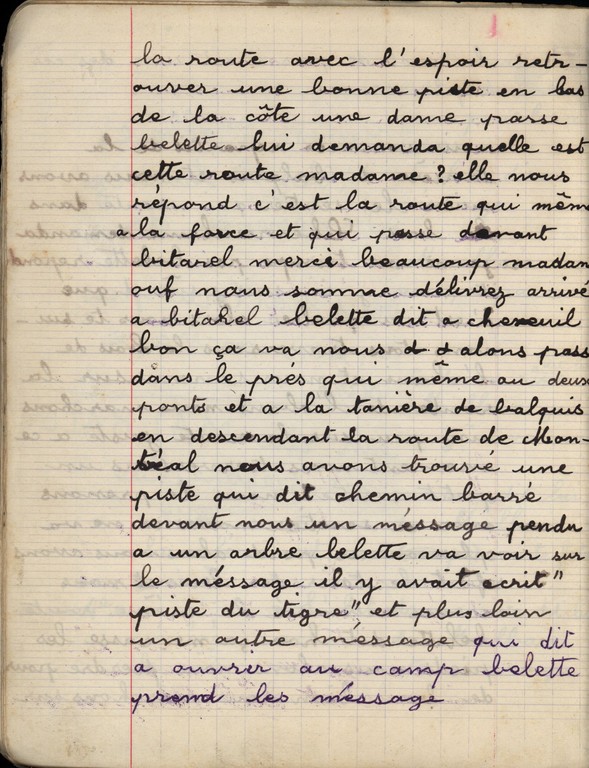 la route avec l'espoir retr-
ouver une bonne piste en bas
de la côte une dame passe
belette lui demanda quelle est
cette route madame? elle nous
répond c'est la route qui même
a la force et qui passe devant
bitarel merci beaucoup madam
ouf nous somme délivrez arrivé
a bitarel belette dit a chevreuil
bon ça va nous alons pass
dans le prés qui même au deux
ponts et a la tanière de balquis
en descendant la route de Mon-
tréal nous avons trouvé une
piste qui dit chemin barré
devant nous un méssage pendu
a un arbre belette va voir sur
le méssage il y avait ecrit "
piste du tigre" et plus loin
un autre méssage qui dit
a ouvrer au camp belette
prend les méssage